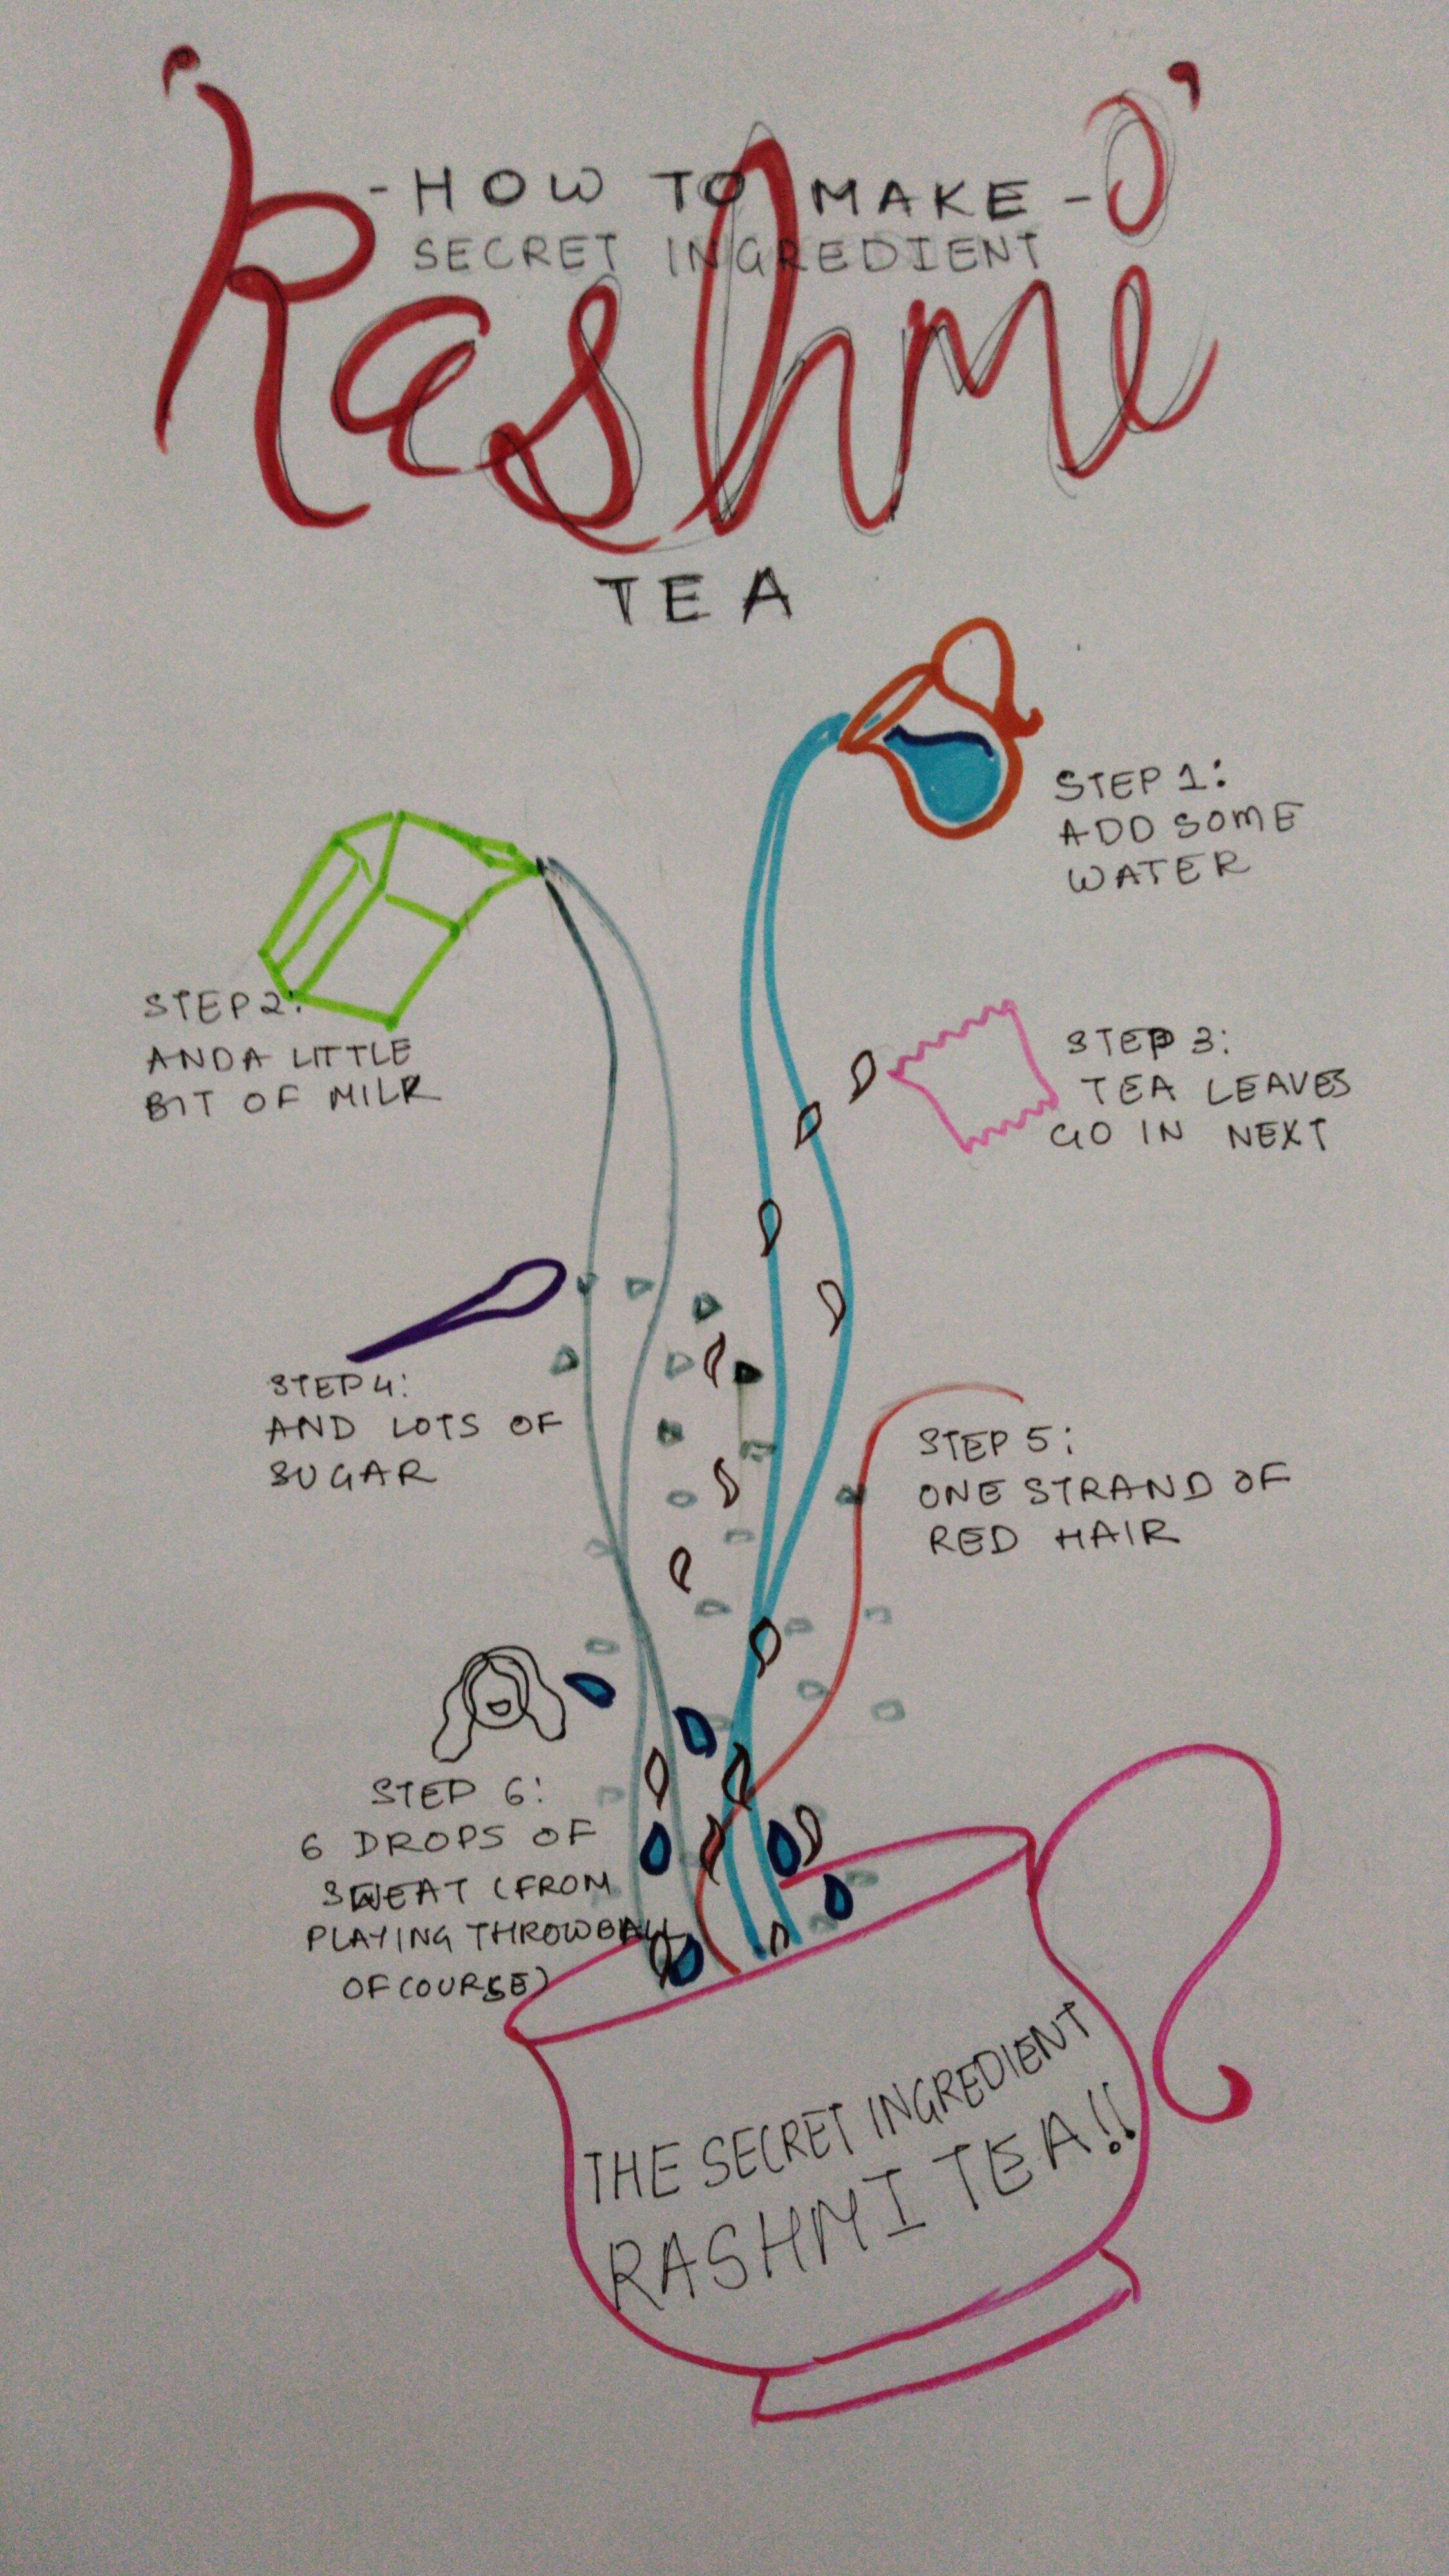 -HOW TO MAKE-
SECRET INGREDIENT
'Rashmi'
TEA
STEP 1:
ADD SOME
WATER
STEP 2:
AND A LITTLE
BIT OF MILK
STEP 3:
TEA LEAVES
GO IN NEXT
STEP 4:
AND LOTS OF
SUGAR
STEP 5:
ONE STRAND OF
RED HAIR
STEP 6:
6 DROPS OF
SWEAT (FROM
PLAYING THROWBALL
OFCOURSE)
THE SECRET INGREDIENT
RASHMI TEA!!